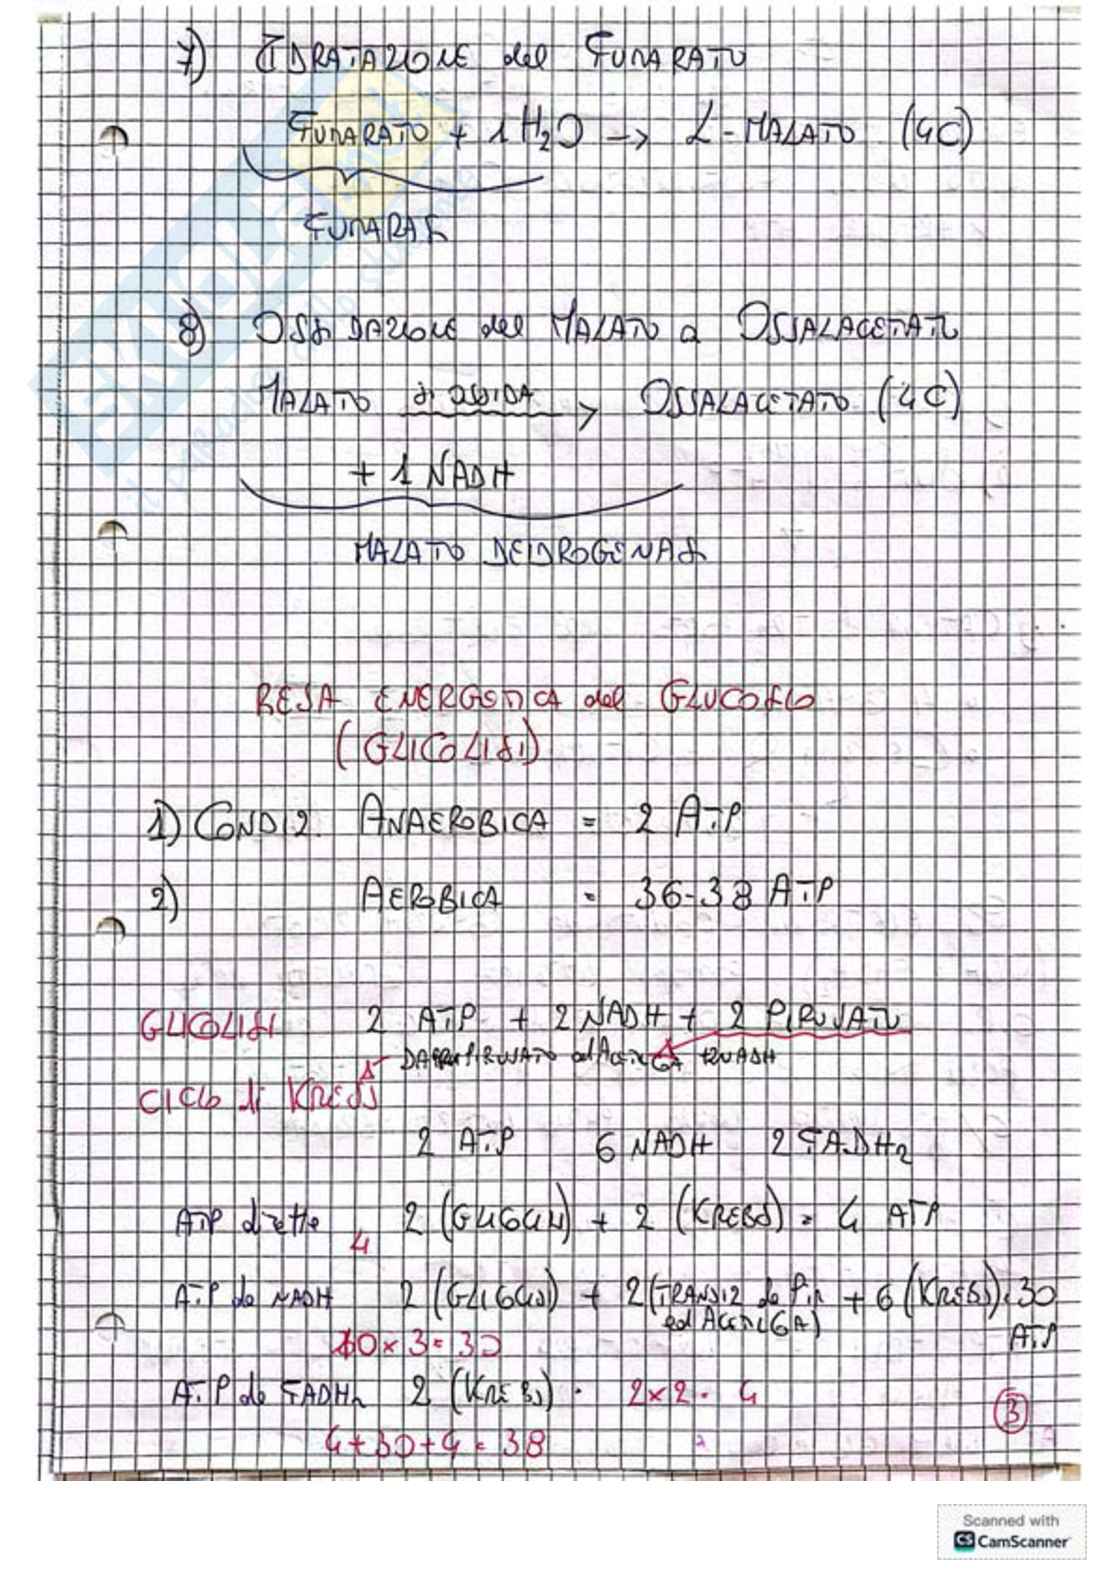 7) IDRATAZIONE del FUMARATO
FUMARATO + 1 H2O -> L-MALATO (4C)
FUMARASI
8) OSSIDAZIONE del MALATO a OSSALACETATO
MALATO si OSSIDA -> OSSALACETATO (4C)
+ 1 NADH
MALATO DEIDROGENASI
RESA ENERGETICA del GLUCOSIO
(GLICOLISI)
1) CONDIZ. ANAEROBICA = 2 ATP
2) AEROBICA = 36-38 ATP
GLICOLISI 2 ATP + 2 NADH + 2 PIRUVATO
PIRUVATO ad Acetil 2 NADH
CICLO di KREBS
2 ATP 6 NADH 2 FADH2
ATP dirette 2 (GLICOLISI) + 2 (KREBS) = 4 ATP
4
ATP da NADH 2 (GLICOLISI) + 2 (TRANSIZ da Pir + 6 (KREBS) = 30
ed Acetil CoA) ATP
10 x 3 = 30
ATP da FADH2 2 (KREBS) = 2 x 2 = 4
3
4 + 30 + 4 = 38
Scanned with
CS CamScanner